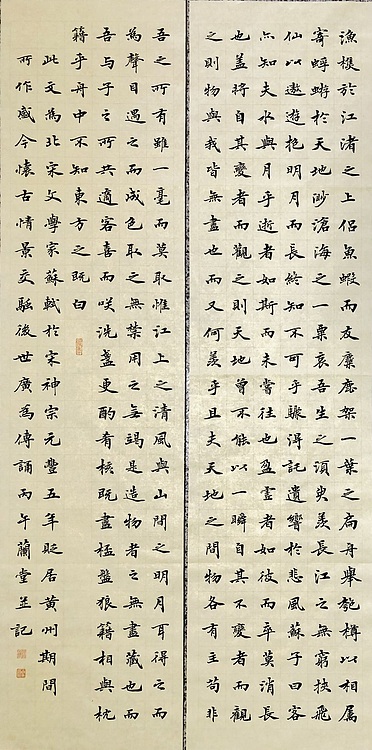 漁樵於江渚之上侶魚蝦而友麋鹿架一葉之扁舟舉匏樽以相屬
寄蜉蝣於天地渺滄海之一粟哀吾生之須臾羨長江之無窮挾飛
仙以遨遊抱明月而長終知不可乎驟得託遺響於悲風蘇子曰客
亦知夫水與月乎逝者如斯而未嘗往也盈虛者如彼而卒莫消長
也蓋將自其變者而觀之則天地曾不能以一瞬自其不變者而觀
之則物與我皆無盡也而又何羨乎且夫天地之間物各有主苟非
吾之所有雖一毫而莫取惟江上之清風與山間之明月耳得之而
為聲目遇之而成色取之無禁用之無竭是造物者之無盡藏也而
吾与子之所共適客喜而咲洗盞更酌肴核既盡杯盤狼籍相與枕
籍乎舟中不知東方之既白
此文為北宋文學家蘇軾於宋神宗元豐五年貶居黃州期間
所作感今懷古情景交融後世廣為傳誦丙午蘭堂並記